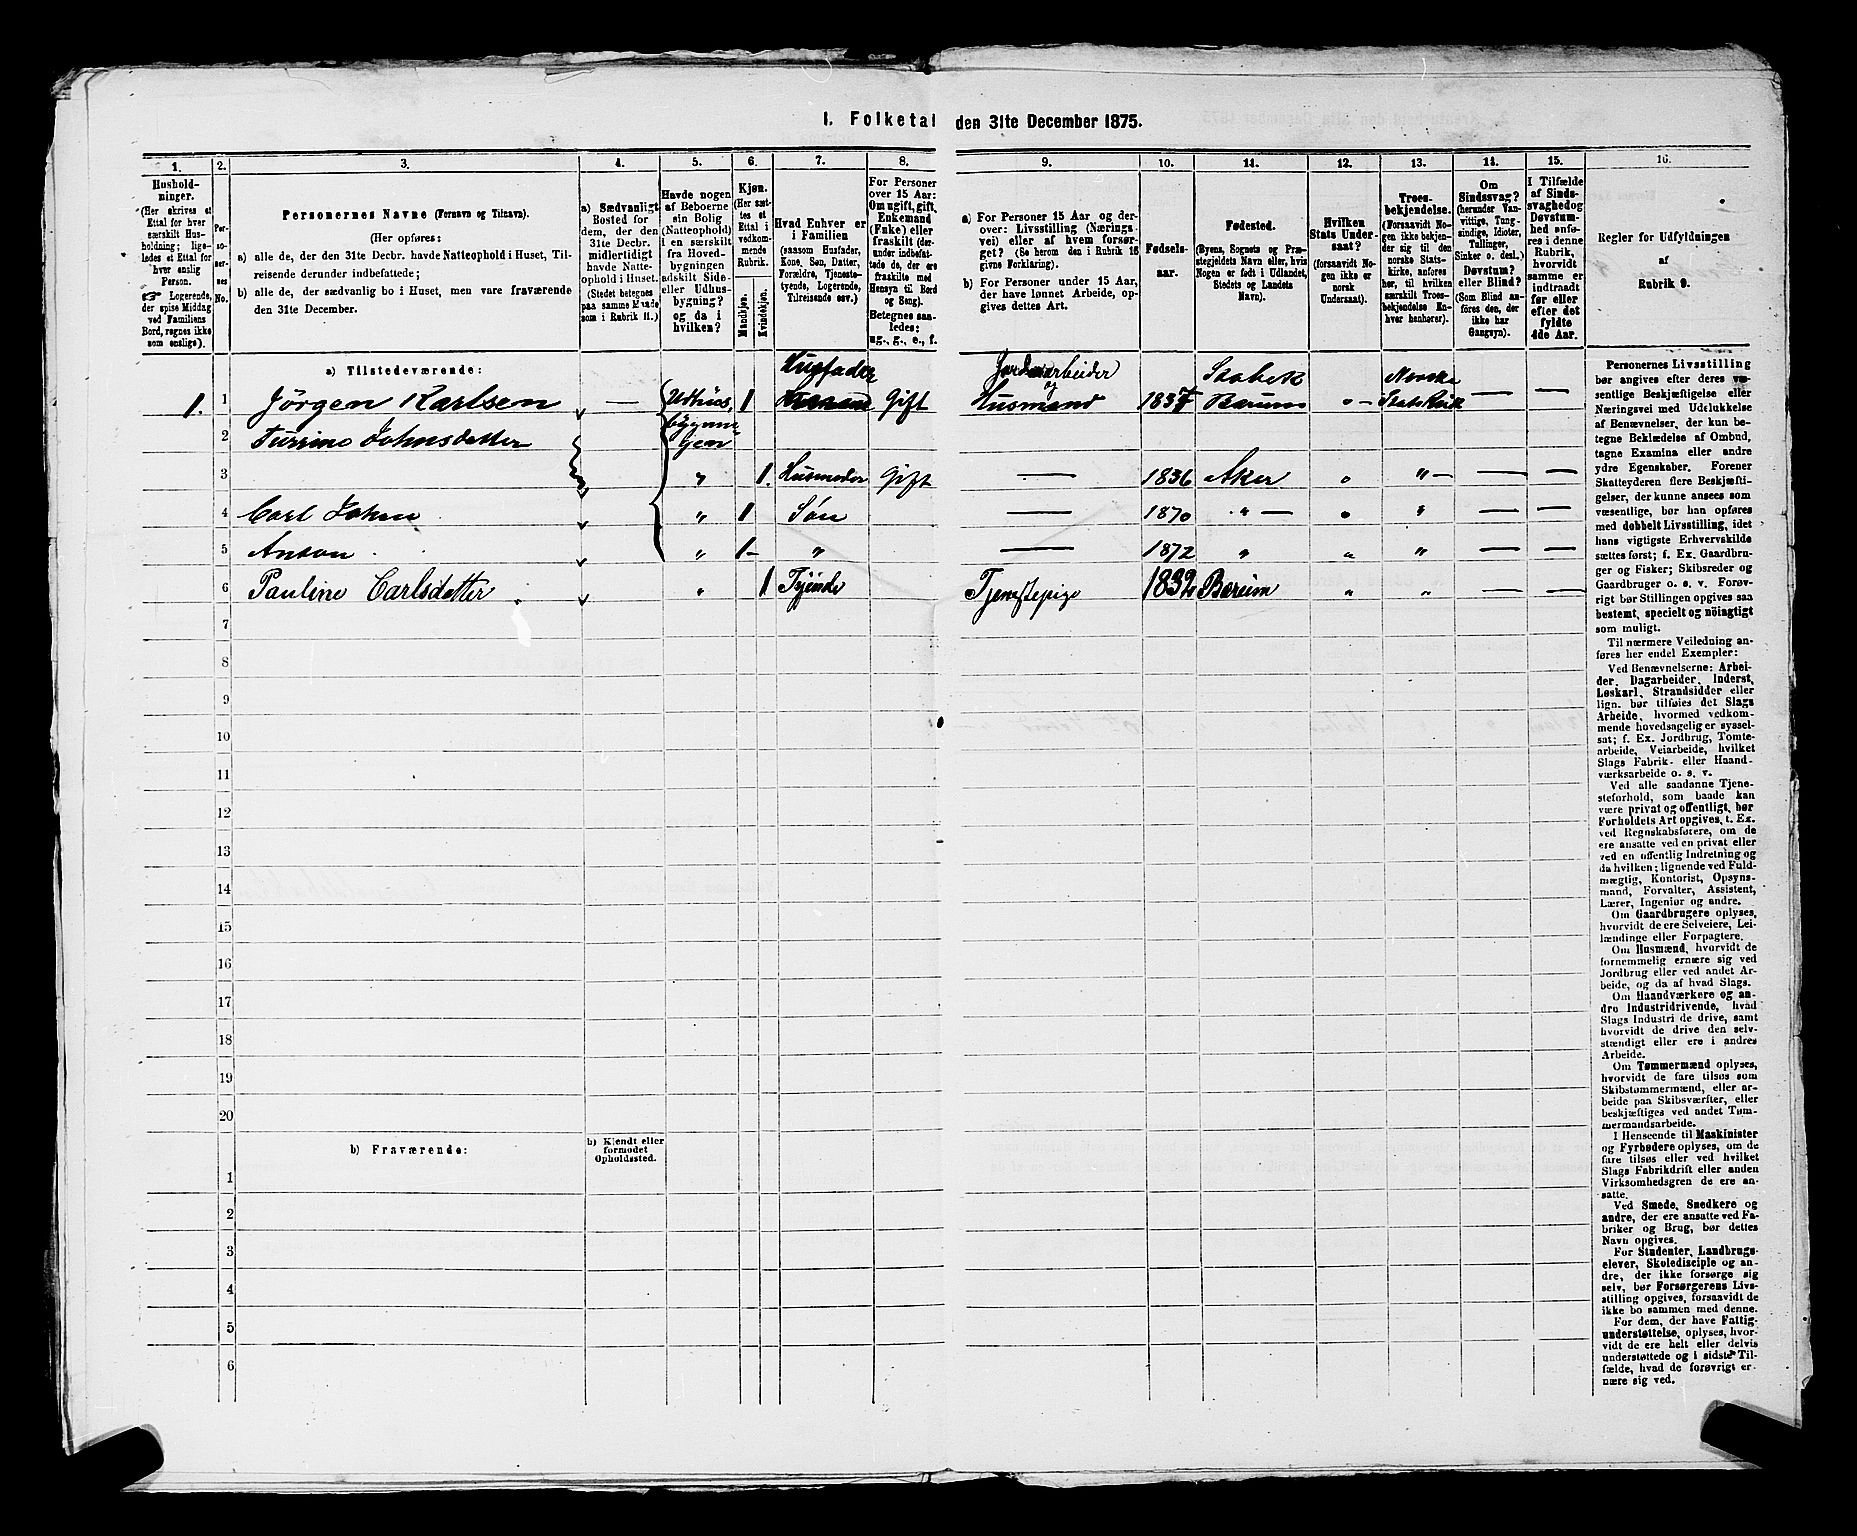 1. Folketal den 31te December 1875.
1. 2. 3. 4. 5. 6. 7. 8. 9. 10. 11. 12. 13. 14. 15. 16.
Husholdninger.
(Her skrives et
Ettal for hver
særskilt Husholdning;
ligeledes et Ettal for
hver enslig
Person.
☞ Logerende,
der spise Middag
ved Familiens
Bord, regnes ikke
som enslige).
Personernes No.
Personernes Navne (Fornavn og Tilnavn).
(Her opføres:
a) alle de, der den 31te Decbr. havde Natteophold i Huset, Tilreisende
derunder indbefattede;
b) alle de, der sædvanlig bo i Huset, men vare fraværende
den 31te December.
a) Sædvanligt
Bosted for
dem, der den
31te Decbr.
midlertidigt
havde Natteophold
i Huset.
(Stedet betegnes
paa samme Maade
som i Rubrik 11.)
Havde nogen
af Beboerne
sin Bolig
(Natteophold)
i en særskilt
fra Hovedbygningen
adskilt Side-
eller Udhusbygning?
og da i
hvilken?
Kjøn.
(Her sættes
et
Ettal i
vedkommende
Rubrik.
Mandkjøn.
Kvindekjøn.
Hvad Enhver er
i Familien
(saasom Husfader,
Kone, Søn, Datter,
Forældre, Tjenestetyende,
Logerende,
Tilreisende osv.)
For Personer
over 15 Aar:
Om ugift, gift,
Enkemand
(Enke) eller
fraskilt (derunder
indbefattede
de, der ere
fraskilte med
Hensyn til Bord
og Seng).
Betegnes saaledes:
ug., g., e., f.
a) For Personer 15 Aar og derover:
Livsstilling (Næringsvei)
eller af hvem forsørget?
(Se herom den i Rubrik 16
givne Forklaring).
b) For Personer under 15 Aar,
der have lønnet Arbeide, opgives
dettes Art.
Fødselsaar.
Fødested.
(Byens, Sognets og Præstegjeldets
Navn eller, hvis
Nogen er født i Udlandet,
Stedets og Landets
Navn).
Hvilken
Stats Undersaat?
(forsaavidt Nogen
ikke er
norsk
Undersaat).
Troesbekjendelse.
(Forsaavidt Nogen
ikke bekjender
sig til den
norske Statskirke,
anføres
her, til hvilken
særskilt Troesbekjendelse
Enhver
henhører).
Om
Sindssvag?
(herunder Vanvittige,
Tungsindige,
Idioter,
Tullinger,
Sinker o. desl.)
Døvstum?
eller Blind?
(Som Blind anføres
den, der
ikke har
Gangsyn).
I Tilfælde
af Sindssvaghed
og
Døvstumhed
anføres
i denne
Rubrik,
hvorvidt
samme er
indtraadt
før eller
efter det
fyldte
4de Aar.
Regler for Udfyldningen
af
Rubrik 9.
a) Tilstedeværende:
1. 1 Jörgen Karlsen — Udhus, 1 Husfader Gift Jordarbeider og Husmand 1837 Stabek Bærum o — Norske Statskirk — —
2 Turrine Johnsdatter bygningen
3 „ 1. Husmoder Gift — 1836 Aker o „ — — —
4 Carl Johan „ 1 Sön — 1870 „ — o „ — —
5 Anton „ 1 „ — 1872 „ „ „ — —
6 Pauline Carlsdatter „ 1 Tjende Tjenestepige 1832 Bærum „ „ — —
7
8
9
10
11
12
13
14
15
16
17
18
19
20
b) Fraværende:
b) Kjendt eller
formodet
Opholdssted.
1
2
3
4
5
6
Personernes Livsstilling
bør angives efter deres væsentlige
Beskjæftigelse eller
Næringsvei med Udelukkelse
af Benævnelser, der kun betegne
Beklædelse af Ombud,
tagne Examina eller andre
ydre Egenskaber. Forener
Skatteyderen flere Beskjæftigelser,
der kunne ansees som
væsentlige, bør han opføres
med dobbelt Livsstilling, idet
hans vigtigste Erhvervskilde
sættes først; f. Ex. Gaardbruger
og Fisker; Skibsreder og
Gaardbruger o. s. v. Forøvrigt
bør Stillingen opgives saa
bestemt, specielt og nöiagtigt
som muligt.
Til nærmere Veiledning anføres
her endel Exempler:
Ved Benævnelserne: Arbeider,
Dagarbeider, Inderst,
Løskarl, Strandsidder eller
lign. bør tilføies det Slags
Arbeide, hvormed vedkommende
hovedsagelig er sysselsat;
f. Ex. Jordbrug, Tomtearbeide,
Veiarbeide, hvilket
Slags Fabrik- eller Haandværksarbeide
o. s. v.
Ved alle saadanne Tjenesteforhold,
som baade kan
være privat og offentligt, bør
Forholdets Art opgives, t. Ex.
ved Regnskabsførere, om de
ere ansatte ved en privat eller
ved en offentlig Indretning og
da hvilken; lignende ved Fuldmægtig,
Kontorist, Opsynsmand,
Forvalter, Assistent,
Lærer, Ingeniør og andre.
Om Gaardbrugere oplyses,
hvorvidt de ere Selveiere, Leilændinge
eller Forpagtere.
Om Husmænd, hvorvidt de
fornemmelig ernære sig ved
Jordbrug eller ved andet Arbeide,
og da af hvad Slags.
Om Haandværkere og andre
Industridrivende, hvad
Slags Industri de drive, samt
hvorvidt de drive den selvstændigt
eller ere i andres
Arbeide.
Om Tømmermænd oplyses,
hvorvidt de fare tilsøs som
Skibstømmermænd, eller arbeide
paa Skibsværfter, eller
beskjæftiges ved andet Tømmermandsarbeide.
I Henseende til Maskinister
og Fyrbødere oplyses, om de
fare tilsøs eller ved hvilket
Slags Fabrikdrift eller anden
Virksomhedsgren de ere ansatte.
Ved Smede, Snedkere og
andre, der ere ansatte ved Fabriker
og Brug, bør dettes
Navn opgives.
For Studenter, Landbrugselever,
Skoledisciple og andre,
der ikke forsørge sig
selv, bør Forsørgerens Livsstilling
opgives, forsaavidt de
ikke bo sammen med denne.
For dem, der have Fattigunderstøttelse,
oplyses, hvorvidt
de ere helt eller delvis
understøttede og i sidste Tilfælde,
hvad de forøvrigt ernære
sig ved.